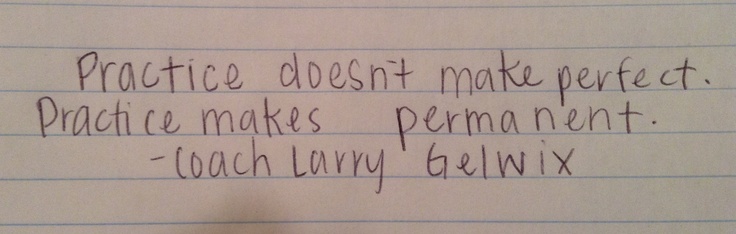 Practice doesn't make perfect.
Practice makes permanent.
-Coach Larry Gelwix